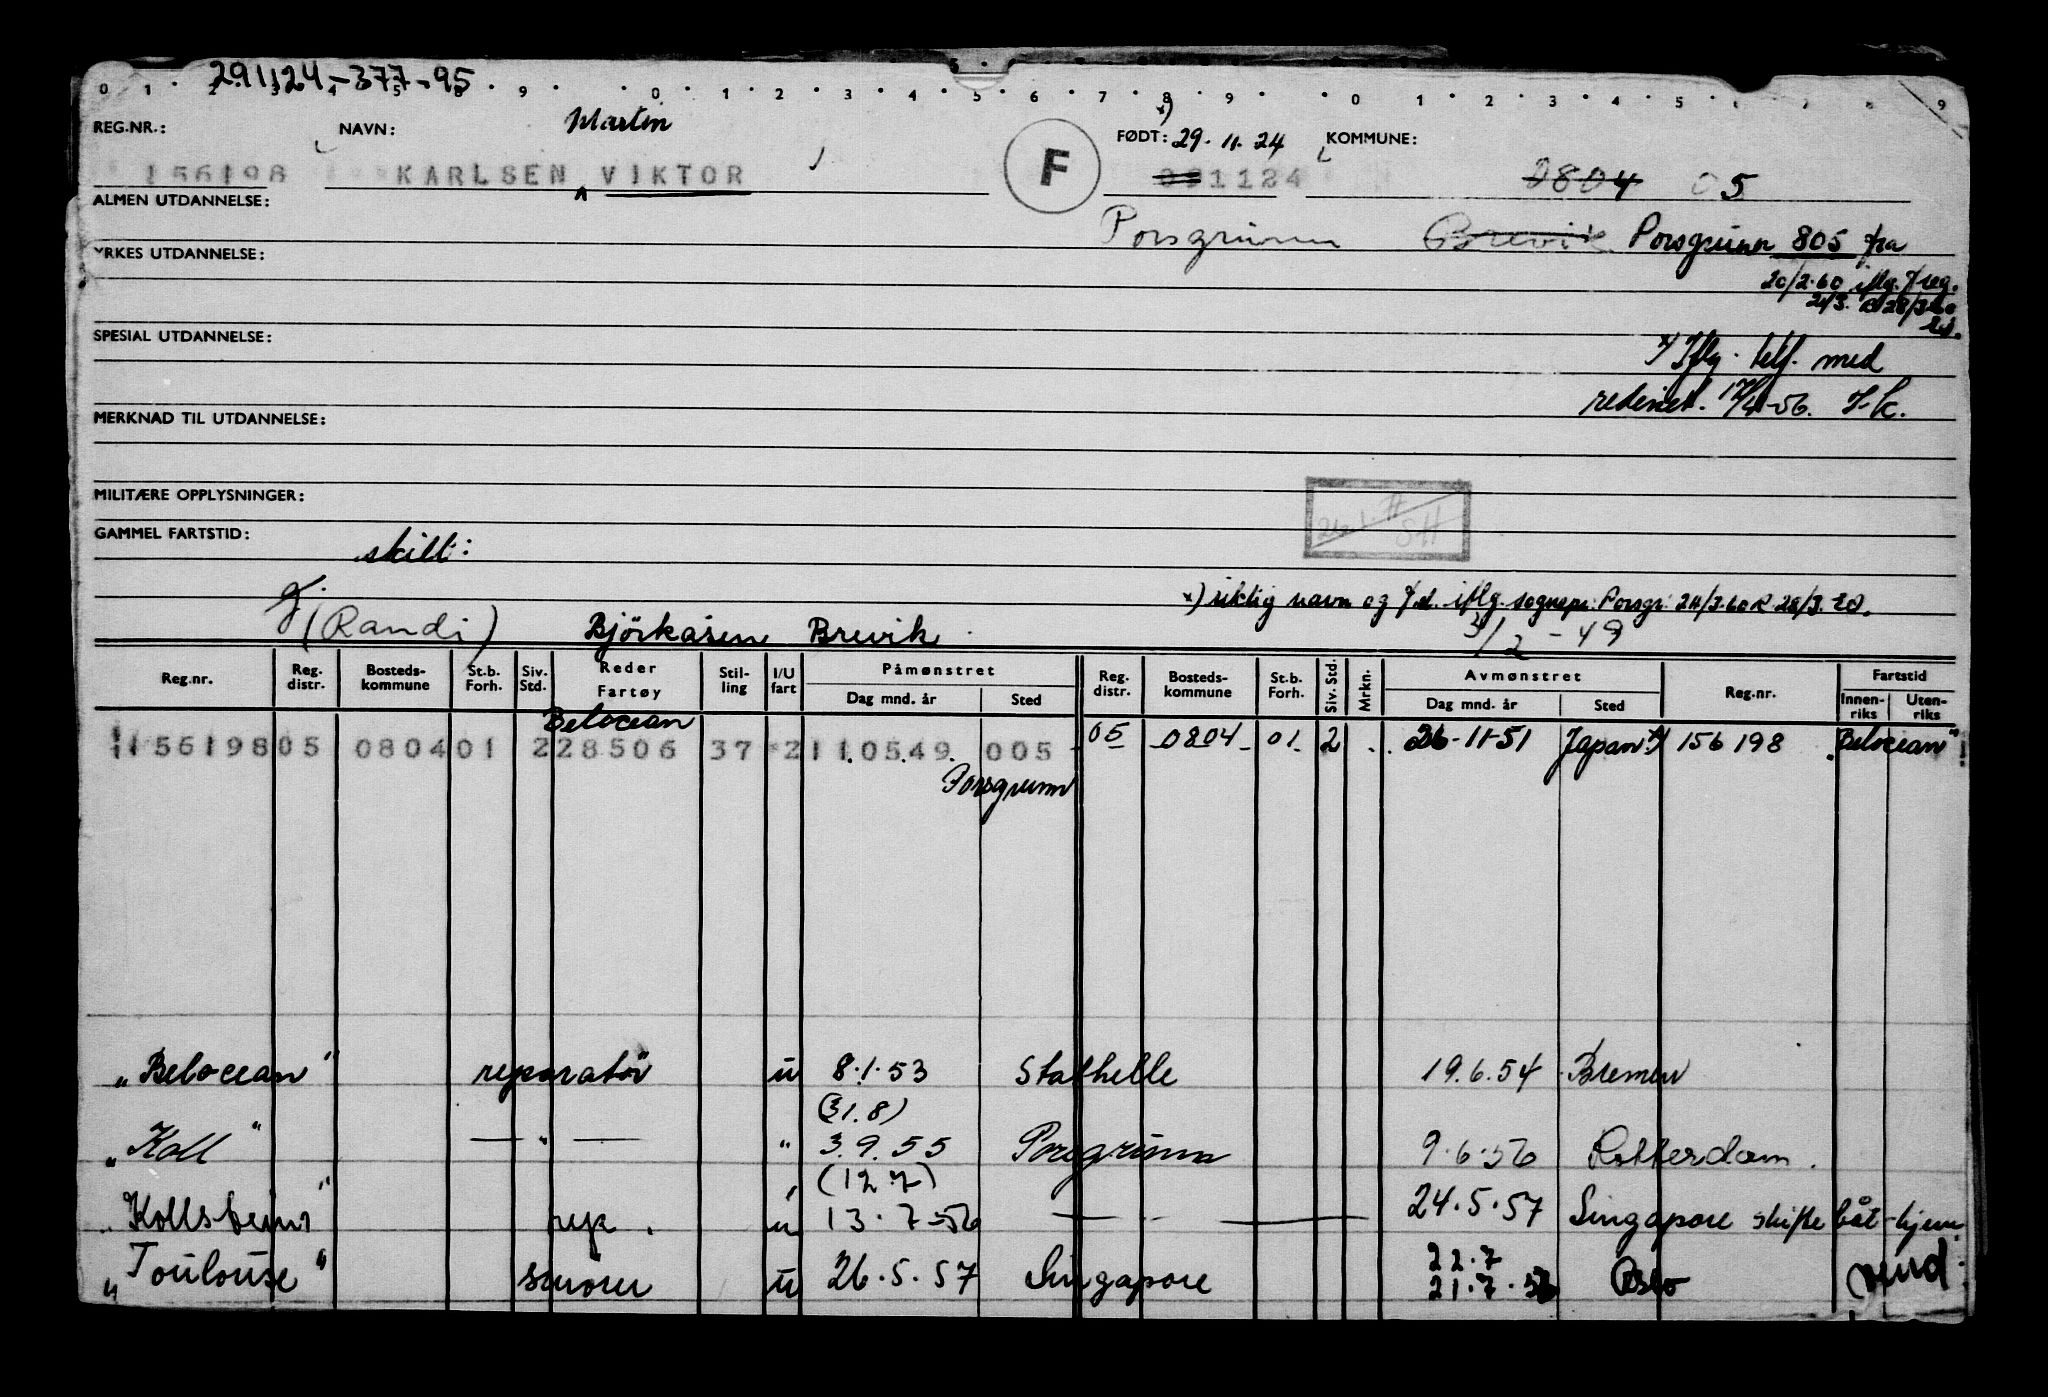 291124-377-95
0 1 2 3 4 5 8 9 0 1 2 3 4 5 6 7 8 9 0 1 2 3 4 5 6 7 8 9
Martin x)
REG.NR.: NAVN: F FØDT: 29.11.24 KOMMUNE:
156198 KARLSEN VIKTOR 091124 0804 05
ALMEN UTDANNELSE:
Porsgrunn Brevik Porsgrunn 805 fra
YRKES UTDANNELSE:
20/2.60 iflg. f/reg.
28/3-60
SPESIAL UTDANNELSE:
x) Iflg. telf. med
rederiet. 12/4-56. J-k.
MERKNAD TIL UTDANNELSE:
MILITÆRE OPPLYSNINGER:
GAMMEL FARTSTID:
skilt:
x) riktig navn og f.d. iflg. sognepr. Porsgr. 24/3.60 R 28/3.
g. (Randi) Bjørkåsen Brevik. 3/2-49
Reg.nr. Reg. distr. Bosteds- kommune St.b. Forh. Siv. Std. Reder Fartøy Stil- ling I/U fart Påmønstret Dag mnd. år Sted Reg. distr. Bosteds- kommune St.b. Forh. Siv. Std. Mrkn. Avmønstret Dag mnd. år Sted Reg.nr. Fartstid Innen- riks Uten- riks
Belocean
156198 05 0804 01 2 28506 37 2 11.05.49. 005 05 0804 01. 2 26-11-51 Japan. 156198 "Belocean"
Porsgrunn
"Belocean" reparatør u 8.1.53 Stathelle 19.6.54 Bremen
(31.8)
"Koll" — " — " 3.9.55 Porsgrunn 9.6.56 Rotterdam.
(12.7)
"Kollsbeinn" rep. u 13.7-56 — " — 24.5.57 Singapore skifte båt-hjem
22.7
"Toulouse" smører u 26.5.57 Singapore 21.7.57 Oslo (vend